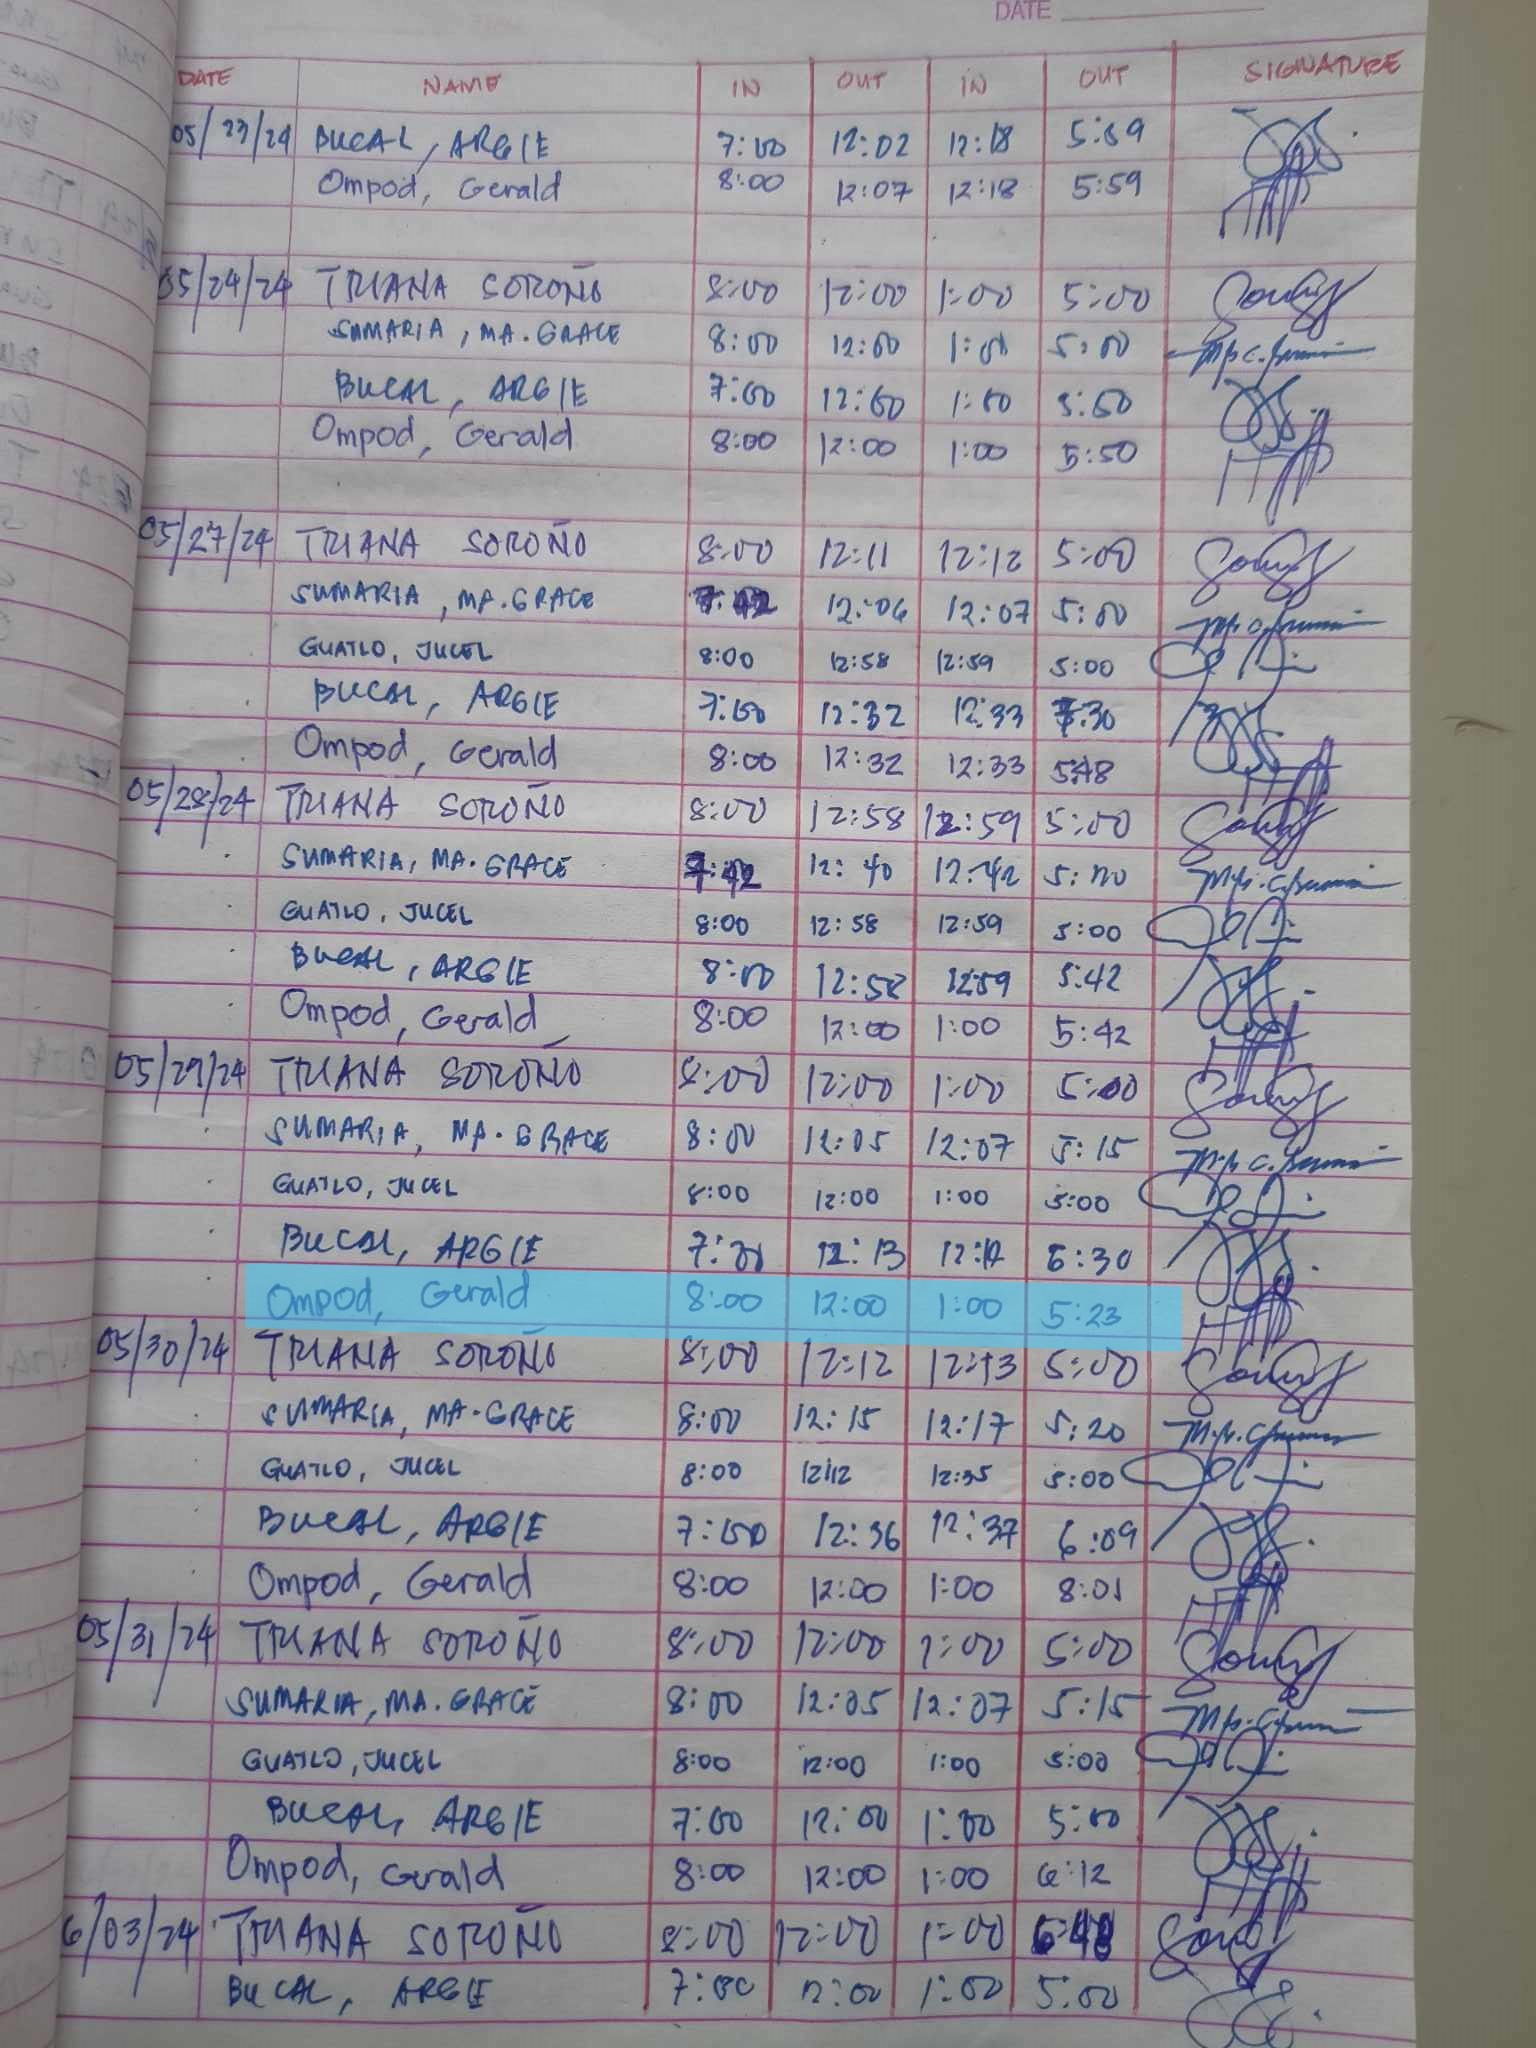 DATE
DATE NAME IN OUT IN OUT SIGNATURE
05/23/24 BUCAL, ARGIE 7:00 12:02 12:18 5:59
Ompod, Gerald 8:00 12:07 12:18 5:59
05/24/24 TRIANA SOROÑO 8:00 12:00 1:00 5:00
SUMARIA, MA. GRACE 8:00 12:00 1:00 5:00
BUCAL, ARGIE 7:00 12:00 1:00 5:50
Ompod, Gerald 8:00 12:00 1:00 5:50
05/27/24 TRIANA SOROÑO 8:00 12:11 12:12 5:00
SUMARIA, MA. GRACE 7:42 12:06 12:07 5:00
GUATLO, JUCEL 8:00 12:58 12:59 5:00
BUCAL, ARGIE 7:00 12:32 12:33 :30
Ompod, Gerald 8:00 12:32 12:33 5:48
05/28/24 TRIANA SOROÑO 8:00 12:58 12:59 5:00
SUMARIA, MA. GRACE 7:42 12:40 12:42 5:00
GUATLO, JUCEL 8:00 12:58 12:59 5:00
BUCAL, ARGIE 8:00 12:58 12:59 5:42
Ompod, Gerald 8:00 12:00 1:00 5:42
05/29/24 TRIANA SOROÑO 8:00 12:00 1:00 5:00
SUMARIA, MA. GRACE 8:00 12:05 12:07 5:15
GUATLO, JUCEL 8:00 12:00 1:00 5:00
BUCAL, ARGIE 12:13
Ompod, Gerald 8:00 12:00 1:00 5:23
05/30/24 TRIANA SOROÑO 8:00 12:12 12:13 5:00
SUMARIA, MA. GRACE 8:00 12:15 12:17 5:20
GUATLO, JUCEL 8:00 12:12 12:35 5:00
BUCAL, ARGIE 7:00 12:36 12:37 6:09
Ompod, Gerald 8:00 12:00 1:00 8:01
05/31/24 TRIANA SOROÑO 8:00 12:00 1:00 5:00
SUMARIA, MA. GRACE 8:00 12:05 12:07 5:15
GUATLO, JUCEL 8:00 12:00 1:00 5:00
BUCAL, ARGIE 7:00 12:00 1:00 5:00
Ompod, Gerald 8:00 12:00 1:00 6:12
6/03/24 TRIANA SOROÑO 8:00 12:00 1:00
BUCAL, ARGIE 7:00 12:00 1:00 5:00